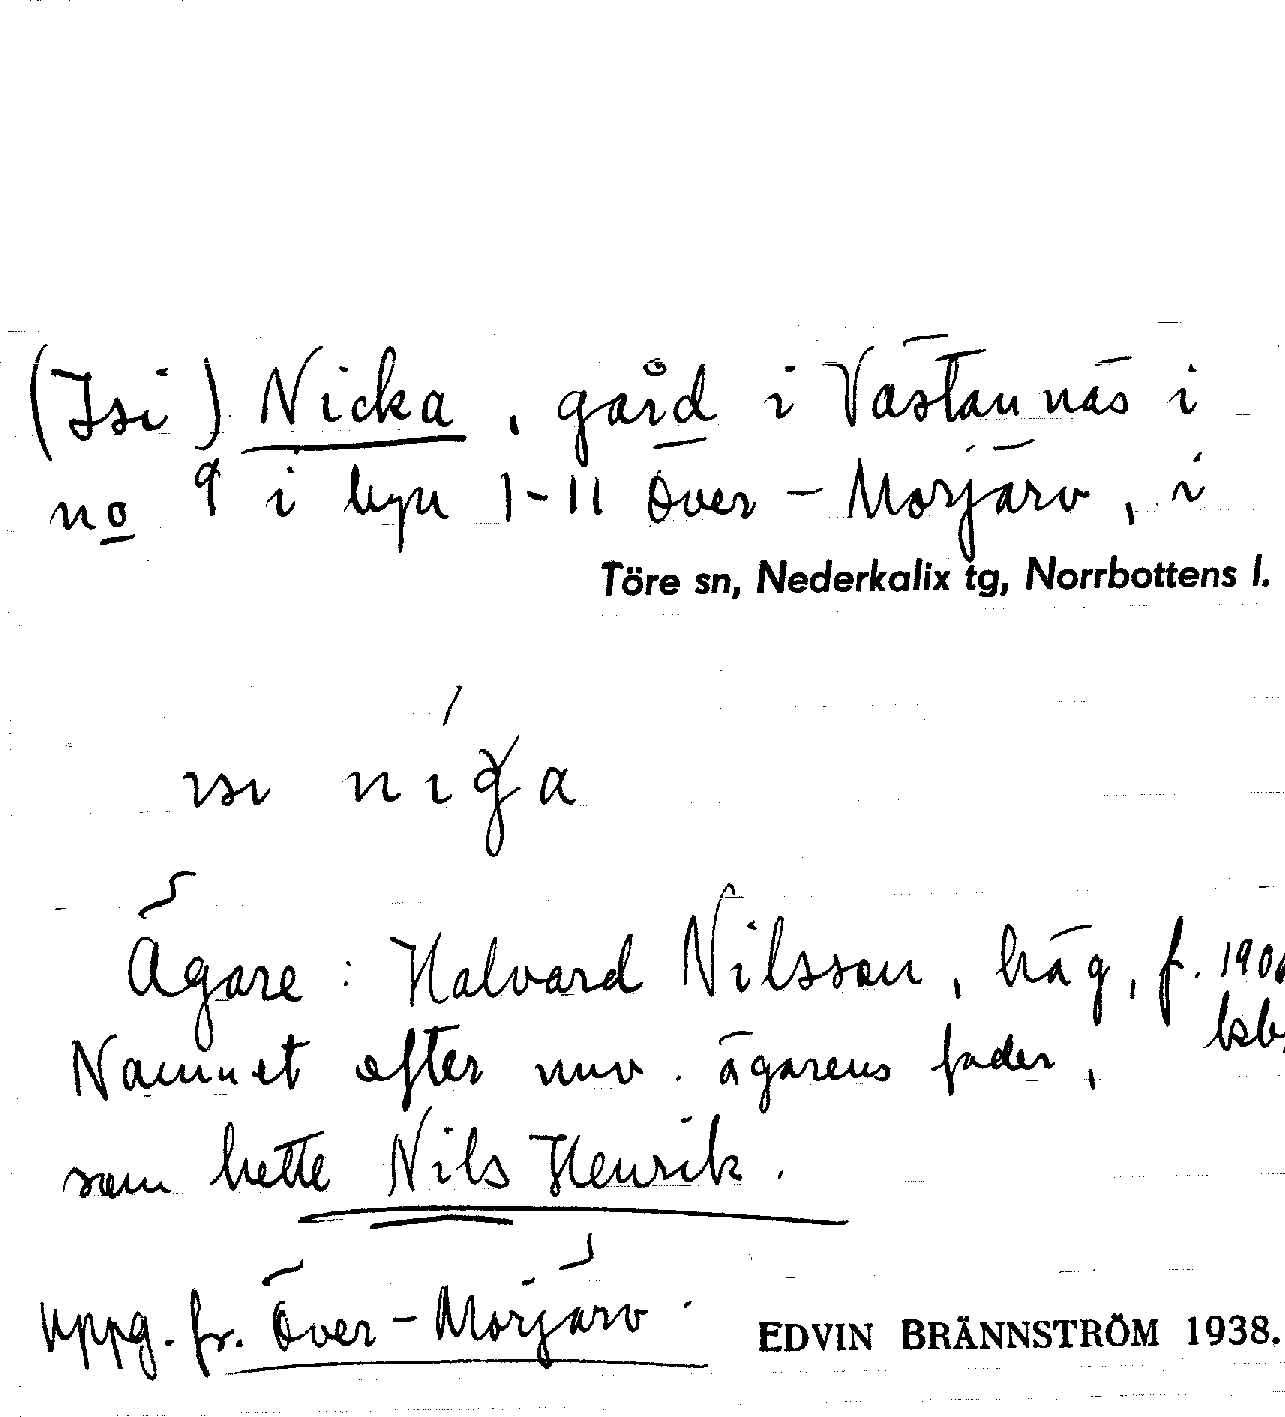 (Isi) Nicka, gård i Västannäs i
no 9 i byn 1-11 Över-Morjärv, i
Töre sn, Nederkalix tg, Norrbottens l.
ısı
Ägare: Halvard Nilsson, häg, f.
Namnet efter nuv. ägarens fader,
som hette Nils Henrik.
uppg. fr. Över-Morjärv.
EDVIN BRÄNNSTRÖM 1938.